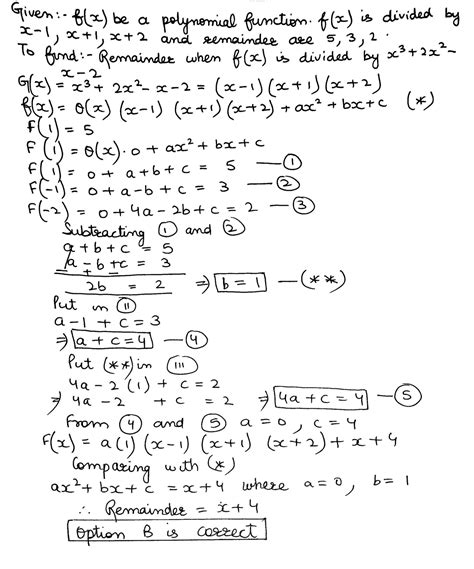 Given:- f(x) be a polynomial function. f(x) is divided by
x-1, x+1, x+2 and remainder are 5, 3, 2.
To find:- Remainder when f(x) is divided by x³+2x²-
x-2
G(x) = x³+2x²-x-2 = (x-1)(x+1)(x+2)
f(x) = Q(x)(x-1)(x+1)(x+2)+ax²+bx+c (*)
F(1) = 5
F(1) = Q(x).0+ax²+bx+c
F(1) = 0+a+b+c = 5 —①
F(-1) = 0+a-b+c = 3 —②
F(-2) = 0+4a-2b+c = 2 —③
Subtracting ① and ②
a+b+c = 5
a-b+c = 3
- + -
2b = 2 ⇒ b=1 —(**)
Put in (II)
a-1+c=3
⇒ a+c=4 —④
Put (**) in (III)
4a-2(1)+c=2
⇒ 4a-2 +c = 2 ⇒ 4a+c=4 —⑤
From ④ and ⑤ a=0, c=4
F(x) = a(1)(x-1)(x+1)(x+2)+x+4
Comparing with (*)
ax²+bx+c = x+4 where a=0, b=1
∴ Remainder = x+4
Option B is correct